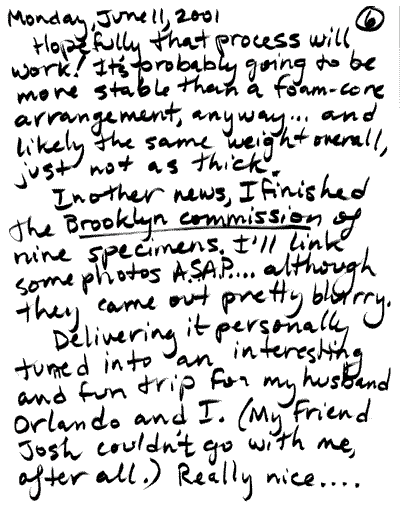 Monday, June 11, 2001 6
Hopefully that process will
work! It's probably going to be
more stable than a foam-core
arrangement, anyway... and
likely the same weight overall,
just not as thick.
In other news, I finished
the Brooklyn commission of
nine specimens. I'll link
some photos A.S.A.P.... although
they came out pretty blurry.
Delivering it personally
turned into an interesting
and fun trip for my husband
Orlando and I. (My friend
Josh couldn't go with me,
after all.) Really nice....